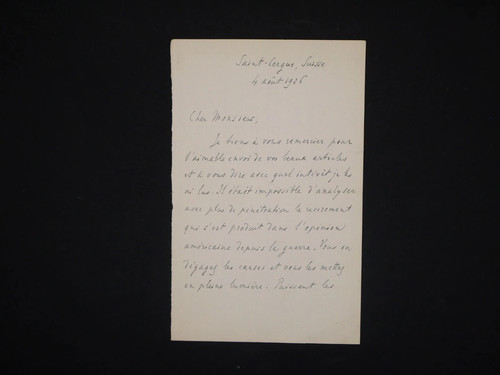 Saint-Cergue, Suisse
4 août 1926
Cher Monsieur,
Je tiens à vous remercier pour
l'aimable envoi de vos beaux articles
et à vous dire avec quel intérêt je les
ai lus. Il était impossible d'analyser
avec plus de pénétration le
qui s'est produit dans l'opinion
américaine depuis la guerre. Vous en
dégagez les causes et vous les mettez
en pleine lumière. Puissent les